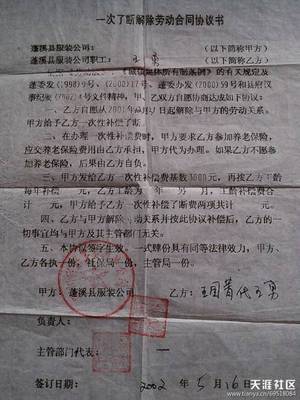 一次了断解除劳动合同协议书
蓬溪县服装公司: (以下简称甲方)
蓬溪县服装公司职工: 王勇 (以下简称乙方)
企业所有制条例》的有关规定及
蓬委发(1998)9号、(2000)17号、蓬委发(2000)59号和县府议
事纪要(2002)4号文件精神,甲、乙双方自愿协商达成如下协议:
一、乙方自愿从2001年 月 日起解除与甲方的劳动关系,
甲方给予乙方一次性补偿了断
二、在办理一次性补偿费时,甲方要求乙方参加养老保险,
应交养老保险费用由乙方承担,甲方代为办理。如果乙方不愿参
加养老保险,后果由乙方自负。
三、甲方发给乙方一次性补偿费基数3000元,再按乙方工龄
每年补偿 元,乙方工龄为 年 月, 工龄补偿费合
计 元,甲方共给予乙方一次性补偿了断费两项共计 元。
四、乙方与甲方解除劳动关系并按此协议补偿后,乙方的一
切事宜均与甲方及其主管部门无关。
五、本协议签字生效。一式肆份具有同等法律效力,甲方、
乙方各执一份,社保局一份,主管局一份。
甲方: 蓬溪县服装公司 乙方: 王国蓉代王勇
负责人:
主管部门代表:
签订日期: 2002 年 5 月 16 日
天涯社区
www.tianya.cn/69518084